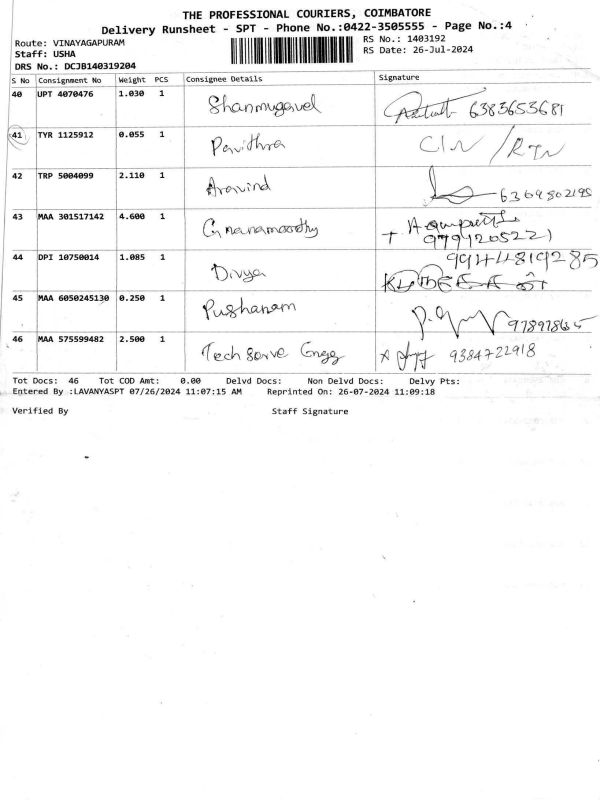 THE PROFESSIONAL COURIERS, COIMBATORE
Delivery Runsheet - SPT - Phone No.:0422-3505555 - Page No.:4
Route: VINAYAGAPURAM RS No.: 1403192
Staff: USHA RS Date: 26-Jul-2024
DRS No.: DCJB140319204
S No Consignment No Weight PCS Consignee Details Signature
40 UPT 4070476 1.030 1 Shanmugavel 6383653681
41 TYR 1125912 0.055 1 Pavithra CIN / RTN
42 TRP 5004099 2.110 1 Aravind 6369802195
43 MAA 301517142 4.600 1 Gnanamoorthy 9791205221
44 DPI 10750014 1.085 1 Divya 9944819285
45 MAA 6050245130 0.250 1 Pushanam
46 MAA 575599482 2.500 1 Tech Serve Engg 9384722918
Tot Docs: 46 Tot COD Amt: 0.00 Delvd Docs: Non Delvd Docs: Delvy Pts:
Entered By :LAVANYASPT 07/26/2024 11:07:15 AM Reprinted On: 26-07-2024 11:09:18
Verified By Staff Signature